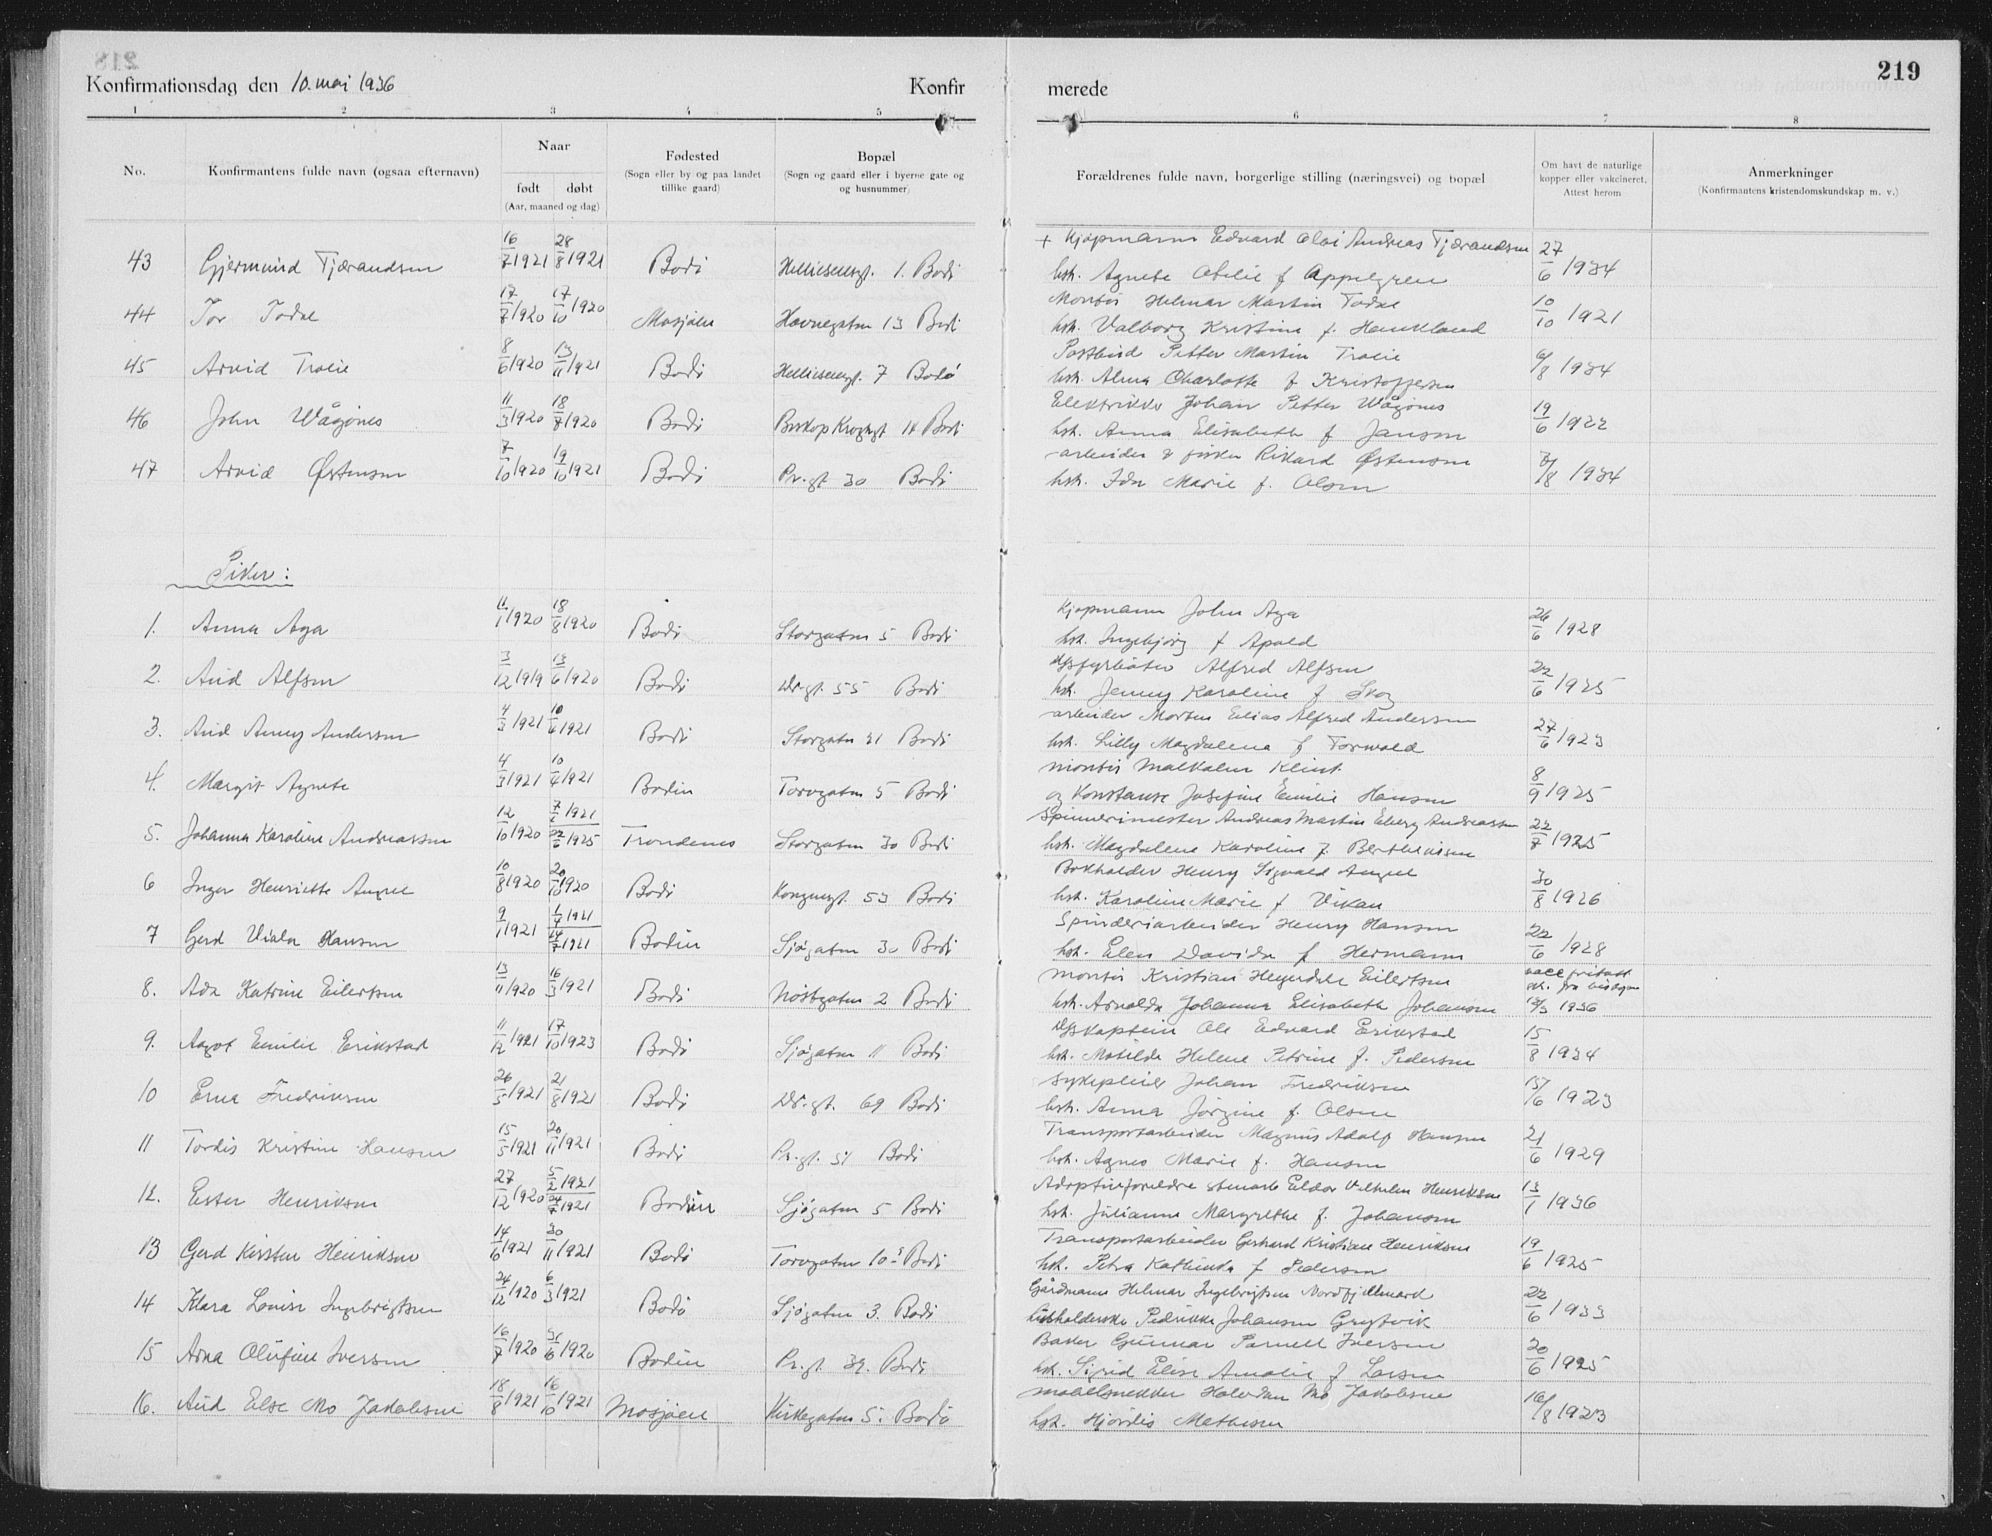 219
Konfirmationsdag den 10. mai 1936
Konfir
merede
1 2 3 4 5 6 7 8
No.
Konfirmantens fulde navn (ogsaa efternavn)
Naar
født døbt
(Aar, maaned og dag)
Fødested
(Sogn eller by og paa landet
tillike gaard)
Bopæl
(Sogn og gaard eller i byerne gate og
og husnummer)
Forældrenes fulde navn, borgerlige stilling (næringsvei) og bopæl
Om havt de naturlige
kopper eller vakcineret.
Attest herom
Anmerkninger
(Konfirmantens kristendomskundskap m. v.)
+ Kjøpmann Edvard Olai Andreas Tjærandsen
43 Gjermund Tjærandsen 16/7 1921 28/8 1921 Bodø Helliesensgt. 1. Bodø hst. Agnete Otelie f Appelgren 27/6 1934
Montør Helmar Martin Todne
44 Tor 17/7 1920 17/10 1920 Mosjøen Havnegaten 13 Bodø hst. Valborg Kristine f. Haukland 10/10 1921
Postbud Petter Martin Trolie
45 Arvid Trolie 8/6 1920 13/11 1921 Bodø Hellicsensgt. 7 Bodø hst. Alma Charlotte f Kristoffersen 6/8 1934
Elektriker Johan Petter Vågønes
46 John Vågønes 11/3 1920 18/7 1920 Bodø Biskop Kroghsgt 14 Bodø hst. Anna Elisabeth f Jansen 19/6 1922
arbeider & fisker Rikard Østensen
47 Arvid Østensen 7/10 1920 19/10 1921 Bodø Pr.gt 30 Bodø hst. Ida Marie f. Olsen /8 1934
Piker:
Kjøpmann John Aga
1. Anna Aga 11/1 1920 18/8 1920 Bodø Storgaten 5 Bodø hst. Ingebjørg f Apold 26/6 1928
Alfred Alfsen
2. Aud Alfsen 3/12 1919 13/6 1920 Bodø Dr.gt. 55 Bodø hst. Jenny Karoline f Skog 22/6 1925
arbeider Morten Elias Alfred Andersen
3. Aud Anny Andersen 4/3 1921 10/6 1921 Bodø Storgaten 31 Bodø hst. Lilly Magdalena f Torvald 27/6 1923
montør Malkolm Klint
4. Margit Agnete 4/3 1921 10/4 1921 Bodin Torvgaten 5 Bodø og Konstanse Josefine Emilie Hansen 8/9 1925
Spinnerimester Andreas Martin Eberg Andreassen
5. Johanna Karoline Andreassen 12/10 1920 1921 22/6 1925 Trondenes Storgaten 30 Bodø hst. Magdalene Karoline f. Bertheussen 22/7 1925
Bokholder Henry Sigvald Angell
6 Inger Henriette Angell 10/8 1920 20/10 1920 Bodø Kongensgt. 53 Bodø hst. Karoline Marie f Vikan 30/8 1926
Spinderiarbeider Henry Hansen
7 Gerd Viola Hansen 9/1 1921 1/4 1921 24/7 1921 Bodin Sjøgaten 30 Bodø hst. Elen Davida f Hermann 22/6 1928
montør Kristian Heyerdal Eilertsen
8. Ada Katrine Eilertsen 13/11 1920 16/3 1921 Bodø Nostgaten 2 Bodø hst. Arnalda Johanna Elisabeth Johansen 1936
Kaptein Ole Edvard Erikstad
9. Aagot Emilie Erikstad 11/12 1921 17/10 1923 Bodø Sjøgaten 11 Bodø hst. Matilde Helene Petrine f. Pedersen 15/8 1934
Sykepleier Johan Fredriksen
10 Erna Fredriksen 26/5 1921 21/8 1921 Bodø Dr.gt. 69 Bodø hst. Anna Jørgine f. Olsen 15/6 1923
Transportarbeider Magnus Adolf Hansen
11 Tordis Kristine Hansen 15/5 1921 20/11 1921 Bodø Pr.gt. 51 Bodø hst. Agnes Marie f. Hansen 21/6 1929
Adoptivforeldre Eldor Vilhelm Henriksen
12. Ester Henriksen 27/12 1920 5/2 1921 24/7 1921 Bodin Sjøgaten 5 Bodø hst. Julianne Margrethe f. Johansen 13/1 1936
Transportarbeider Gerhard Kristian Henriksen
13 Gerd Kirsten Henriksen 14/6 1921 30/11 1921 Bodø Torvgaten 10 Bodø hst. Petra Kathinka f Pedersen 19/6 1925
Gårdmann Helmar Ingebrigtsen Nordfjellmark
14 Klara Louise Ingebrigtsen 24/12 1920 6/3 1921 Bodø Sjøgaten 3. Bodø Pedrikke Johansen Grytvik 22/6 1933
Baker Gunnar Parnell Iversen
15 Arna Olufine Iversen 16/7 1920 1920 Bodin Pr.gt. 39. Bodø hst. Sigrid Elise Amalie f Larsen 20/6 1925
møbelsnekker Halvdan Mo Jakobsen
16. Aud Else Mo Jakobsen 18/8 1921 16/10 1921 Mosjøen Kirkegaten 5. Bodø hst. Hjørdis Mathisen 16/8 1923